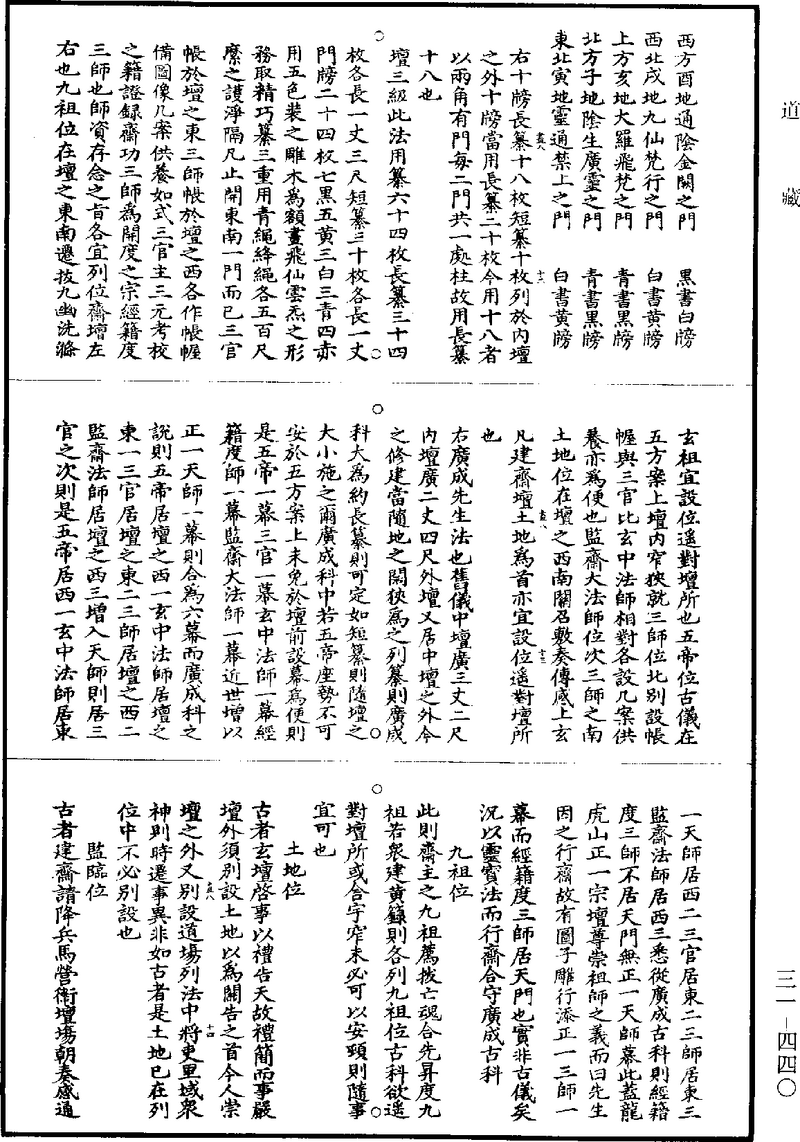 道藏
三一-四四〇
西方酉地通陰金闕之門　黑書白牓
西北戌地九仙梵行之門　白書黃牓
上方亥地大羅飛梵之門　青書黑牓
北方子地陰生廣靈之門　青書黑牓
東北寅地靈通禁上之門　白書黃牓
右十牓長纂十八枚短纂十枚列於內壇
之外十牓當用長纂二十枚今用十八者
以兩角有門每二門共一處柱故用長纂
十八也
壇三級此法用纂六十四枚長纂三十四
枚各長一丈三尺短纂三十枚各長一丈
門牓二十四枚七黑五黃三白三青四赤
用五色裝之雕木為額畫飛仙雲炁之形
務取精巧纂三重用青繩絳繩各五百尺
縻之護淨隔凡止開東南一門而已三官
帳於壇之東三師帳於壇之西各作帳幄
備圖像几案供養如式三官主三元考校
之籍證錄齋功三師為開度之宗經籍度
三師也師資存念之旨各宜列位齋壇左
右也九祖位在壇之東南遷拔九幽洗滌
玄祖宜設位遙對壇所也五帝位古儀在
五方案上壇內窄狹就三師位北別設帳
幄與三官比玄中法師相對各設几案供
養亦為便也監齋大法師位次三師之南
土地位在壇之西南關召敷奏傳感上玄
凡建齋壇土地為首亦宜設位遙對壇所
也
右廣成先生法也舊儀中壇廣三丈二尺
內壇廣二丈四尺外壇又居中壇之外今
之修建當隨地之闊狹為之列纂則廣成
科大為約長纂則可定如短纂則隨壇之
大小施之爾廣成科中若五帝座勢不可
安於五方案上未免於壇前設幕為便則
是五帝一幕三官一幕玄中法師一幕經
籍度師一幕監齋大法師一幕近世增以
正一天師一幕則合為六幕而廣成科之
說則五帝居壇之西一玄中法師居壇之
東一三官居壇之東二三師居壇之西二
監齋法師居壇之西三增入天師則居三
官之次則是五帝居西一玄中法師居東
一天師居西二三官居東二三師居東三
監齋法師居西三悉從廣成古科則經籍
度三師不居天門無正一天師幕此蓋龍
虎山正一宗壇尊崇祖師之義而曰先生
因之行齋故有圖子雕行添正一三師一
幕而經籍度三師居天門也實非古儀矣
況以靈寶法而行齋合守廣成古科
九祖位
此則齋主之九祖薦拔亡魂合先昇度九
祖若眾建黃籙則各列九祖位古科欲遙
對壇所或合宇窄未必可以安頓則隨事
宜可也
土地位
古者玄壇啓事以禮告天故禮簡而事嚴
壇外須別設土地以為關告之首今人崇
壇之外又別設道場列法中將吏里域眾
神別時遷事異非如古者是土地已在列
位中不必別設也
監臨位
古者建齋請降兵馬營衛壇場朝奏感通